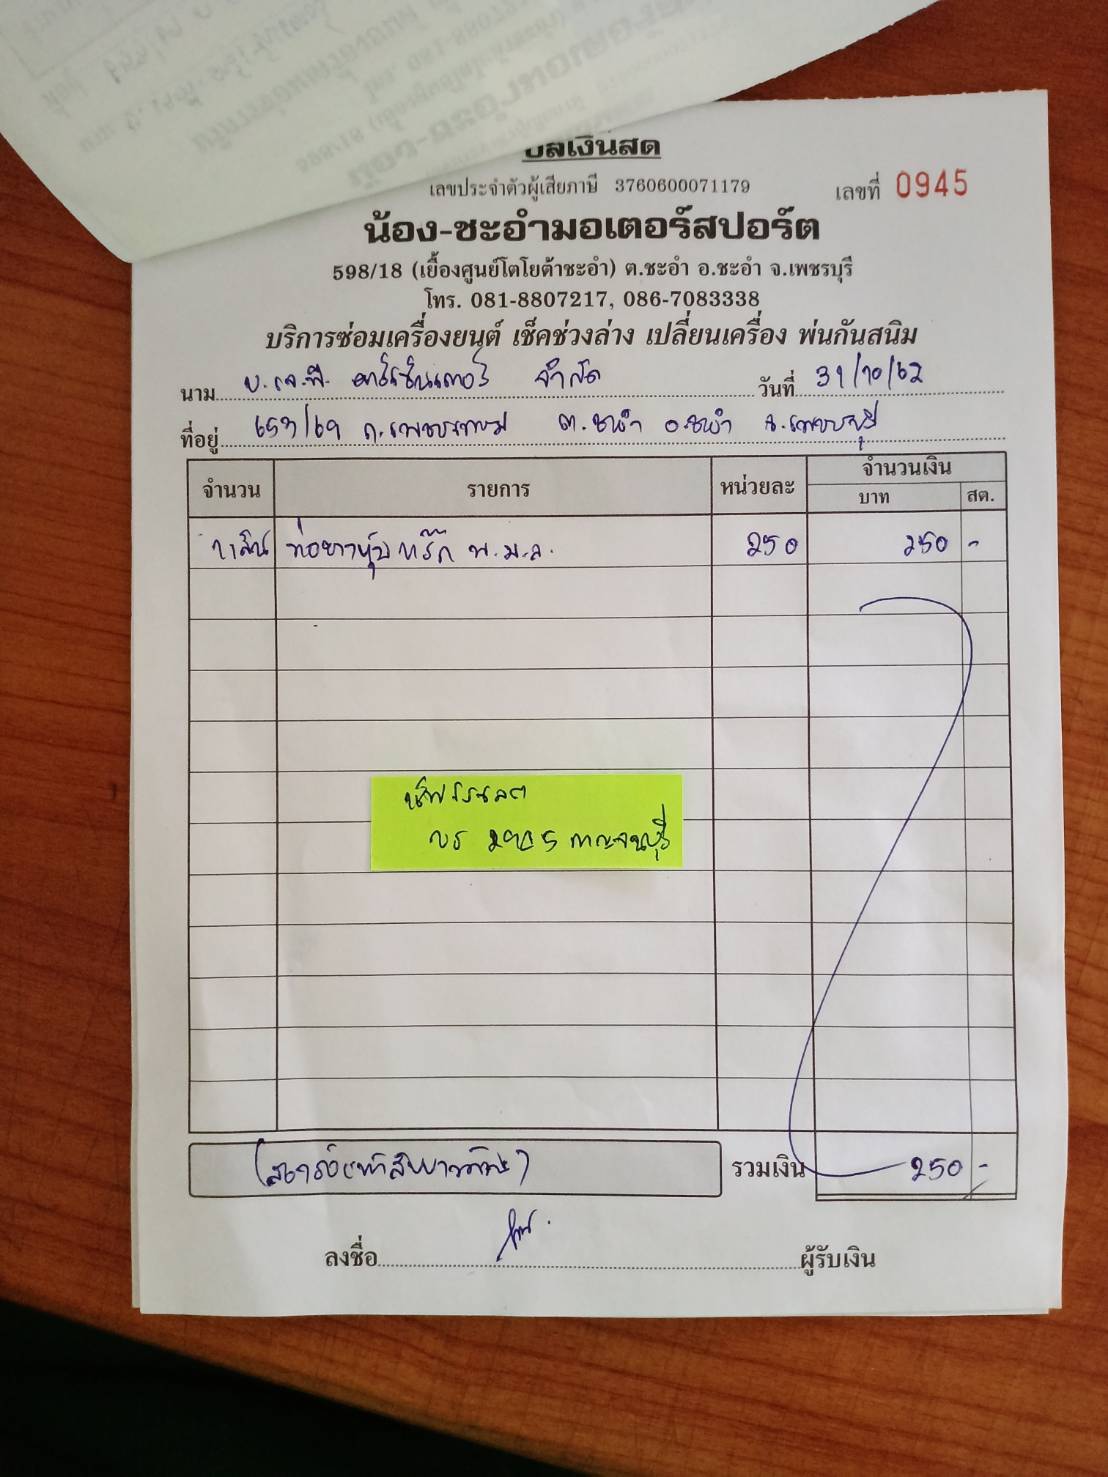 บิลเงินสด
เลขประจำตัวผู้เสียภาษี 3760600071179
เลขที่ 0945
น้อง-ชะอำมอเตอร์สปอร์ต
598/18 (เยื้องศูนย์โตโยต้าชะอำ) ต.ชะอำ อ.ชะอำ จ.เพชรบุรี
โทร. 081-8807217, 086-7083338
บริการซ่อมเครื่องยนต์ เช็คช่วงล่าง เปลี่ยนเครื่อง พ่นกันสนิม
นาม บ.เจ.พี. คาร์เซ็นเตอร์ จำกัด วันที่ 31/10/62
ที่อยู่ 653/69 ถ.เพชรเกษม ต.ชะอำ อ.ชะอำ จ.เพชรบุรี
จำนวน รายการ หน่วยละ จำนวนเงิน
บาท สต.
1 เส้น ท่อยางหุ้มแร็ค พ.ม.ล. 250 250 -
กาญจนบุรี
(สองร้อยห้าสิบบาทถ้วน) รวมเงิน 250 -
ลงชื่อ ผู้รับเงิน